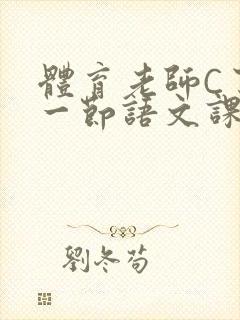 體育老師C了
一節語文課
劉冬荀